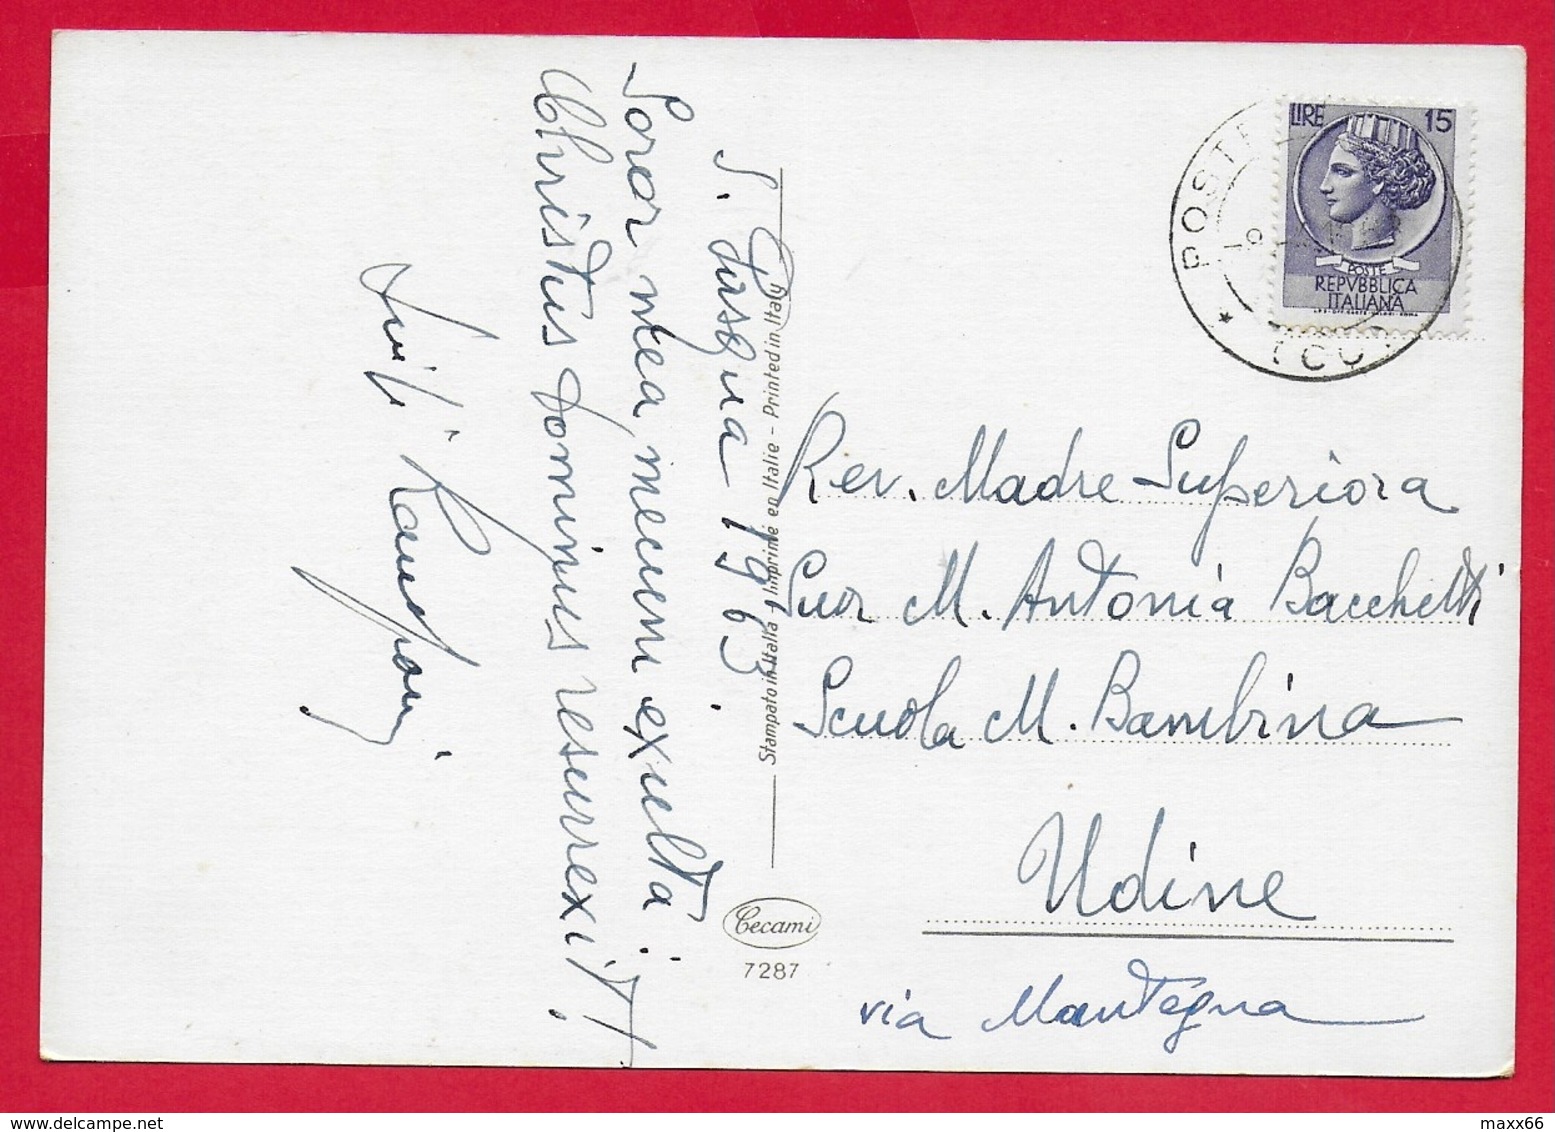 S. Pasqua 1963.
Soror mea, mecum exulta:
Christus Dominus resurrexit!
Stampato in Italia - Imprimé en Italie - Printed in Italy
Cecami
7287
LIRE 15
POSTE
REPVBBLICA
ITALIANA
POSTE
Rev. Madre Superiora
Suor M. Antonia Bacchetti
Scuola M. Bambina
Udine
via Mantegna
maxx66